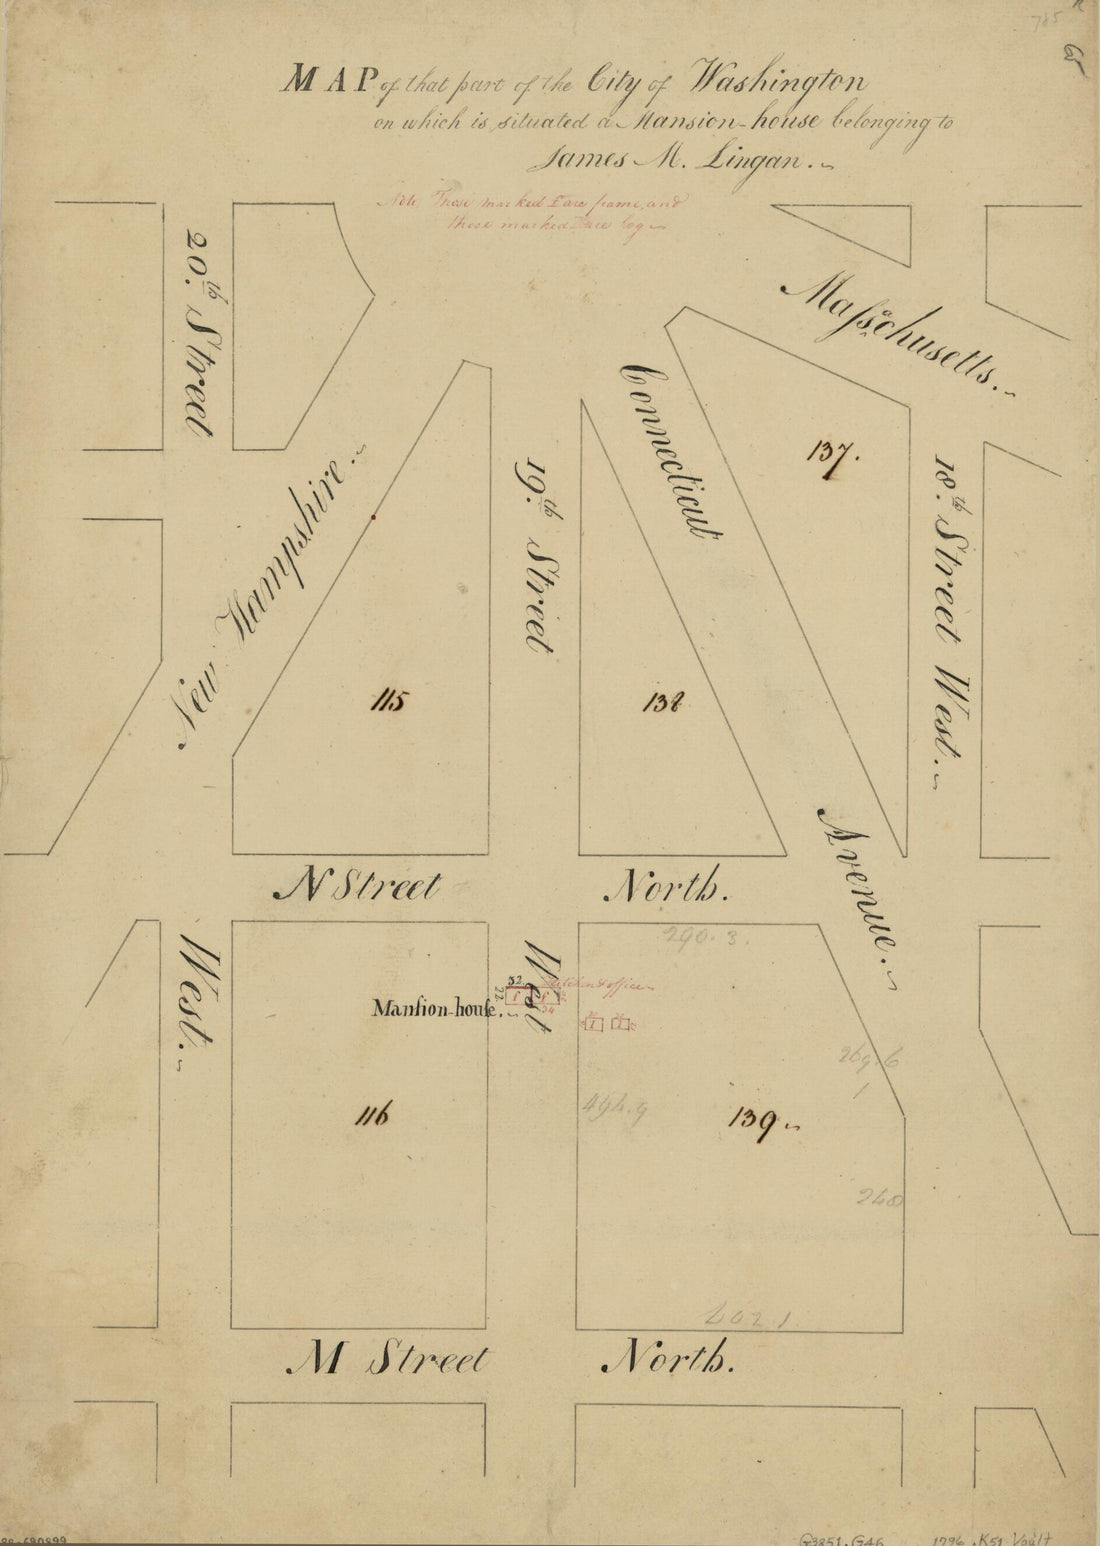 785
MAP of that part of the City of Washington
on which is situated a Mansion-house belonging to
James M. Lingan.
Note Those marked F are frame, and
those marked are log
20.th Street
Massachusetts.
Connecticut
137.
New Hampshire.
19.th Street
18.th Street West.
115
138
Avenue.
N Street North.
290.3.
West.
West
32
22
Kitchen & office
F F
34
Mansion-house.
269.6
1
494.9
116
139
240
602 1
M Street North.
G3851.G46 1796 .K51 Vault